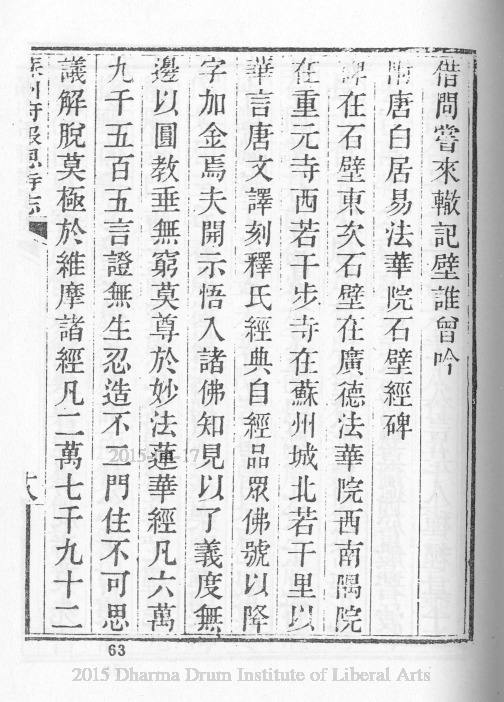 借問嘗來轍記壁誰曾吟
附唐白居易法華院石壁經碑
碑在石壁東次石壁在廣德法華院西南隅院
在重元寺西若干步寺在蘇州城北若干里以
華言唐文譯刻釋氏經典自經品眾佛號以降
字加金焉夫開示悟入諸佛知見以了義度無
邊以圓教垂無窮莫尊於妙法蓮華經凡六萬
九千五百五言證無生忍造不二門住不可思
議解脫莫極於維摩諸經凡二萬七千九十二
州府報恩寺志
六
63
2015 Dharma Drum Institute of Liberal Arts